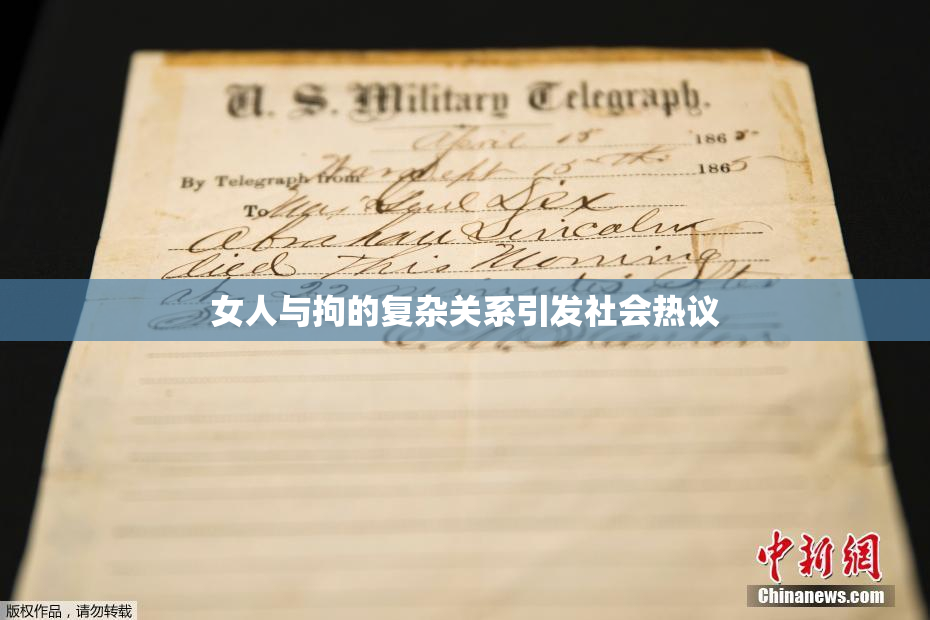 U. S. Military Telegraph.
April 15 1865
By Telegraph from War Dept 15th 1865
To Maj Genl Dix
Abraham Lincoln
died This Morning
at 22 minutes after
女人与拘的复杂关系引发社会热议
E. M. Stanton
中新網
Chinanews.com
版权作品，请勿转载